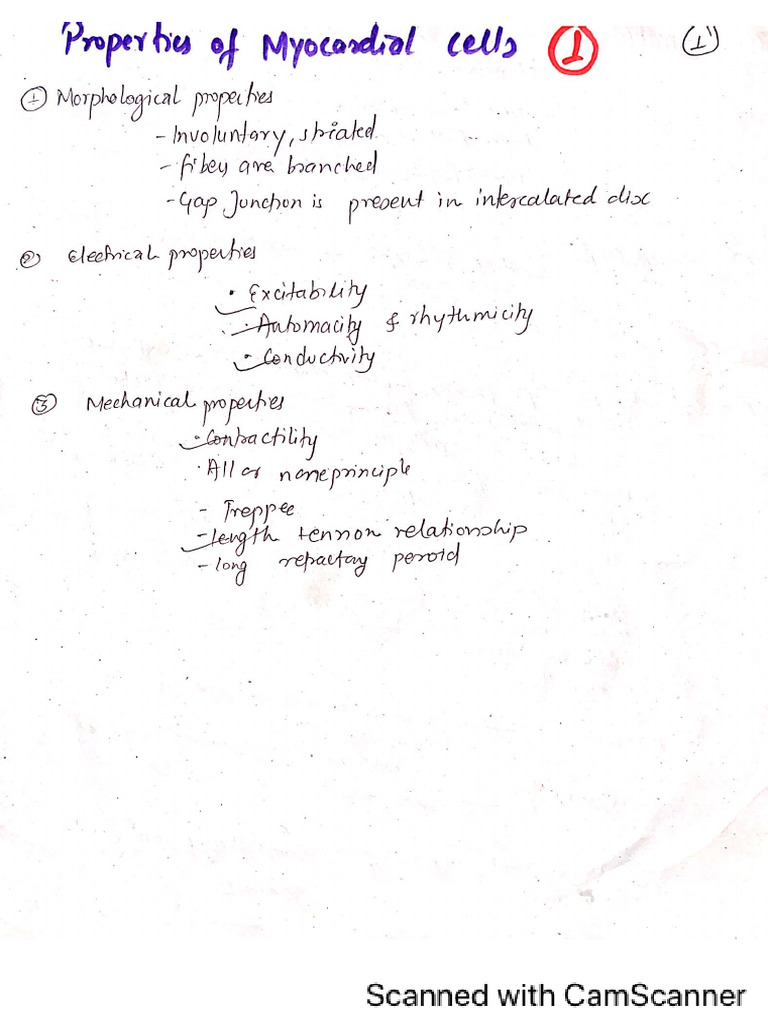 Properties of Myocardial cells ① (1)
① Morphological properties
- Involuntary, striated
- fibey are branched
- Gap Junction is present in intercalated disc
② Electrical properties
• Excitability
• Automacity & rhythmicity
• Conductivity
③ Mechanical properties
• Contractility
• All or none principle
- Treppee
- length tension relationship
- long refractory peroid
Scanned with CamScanner